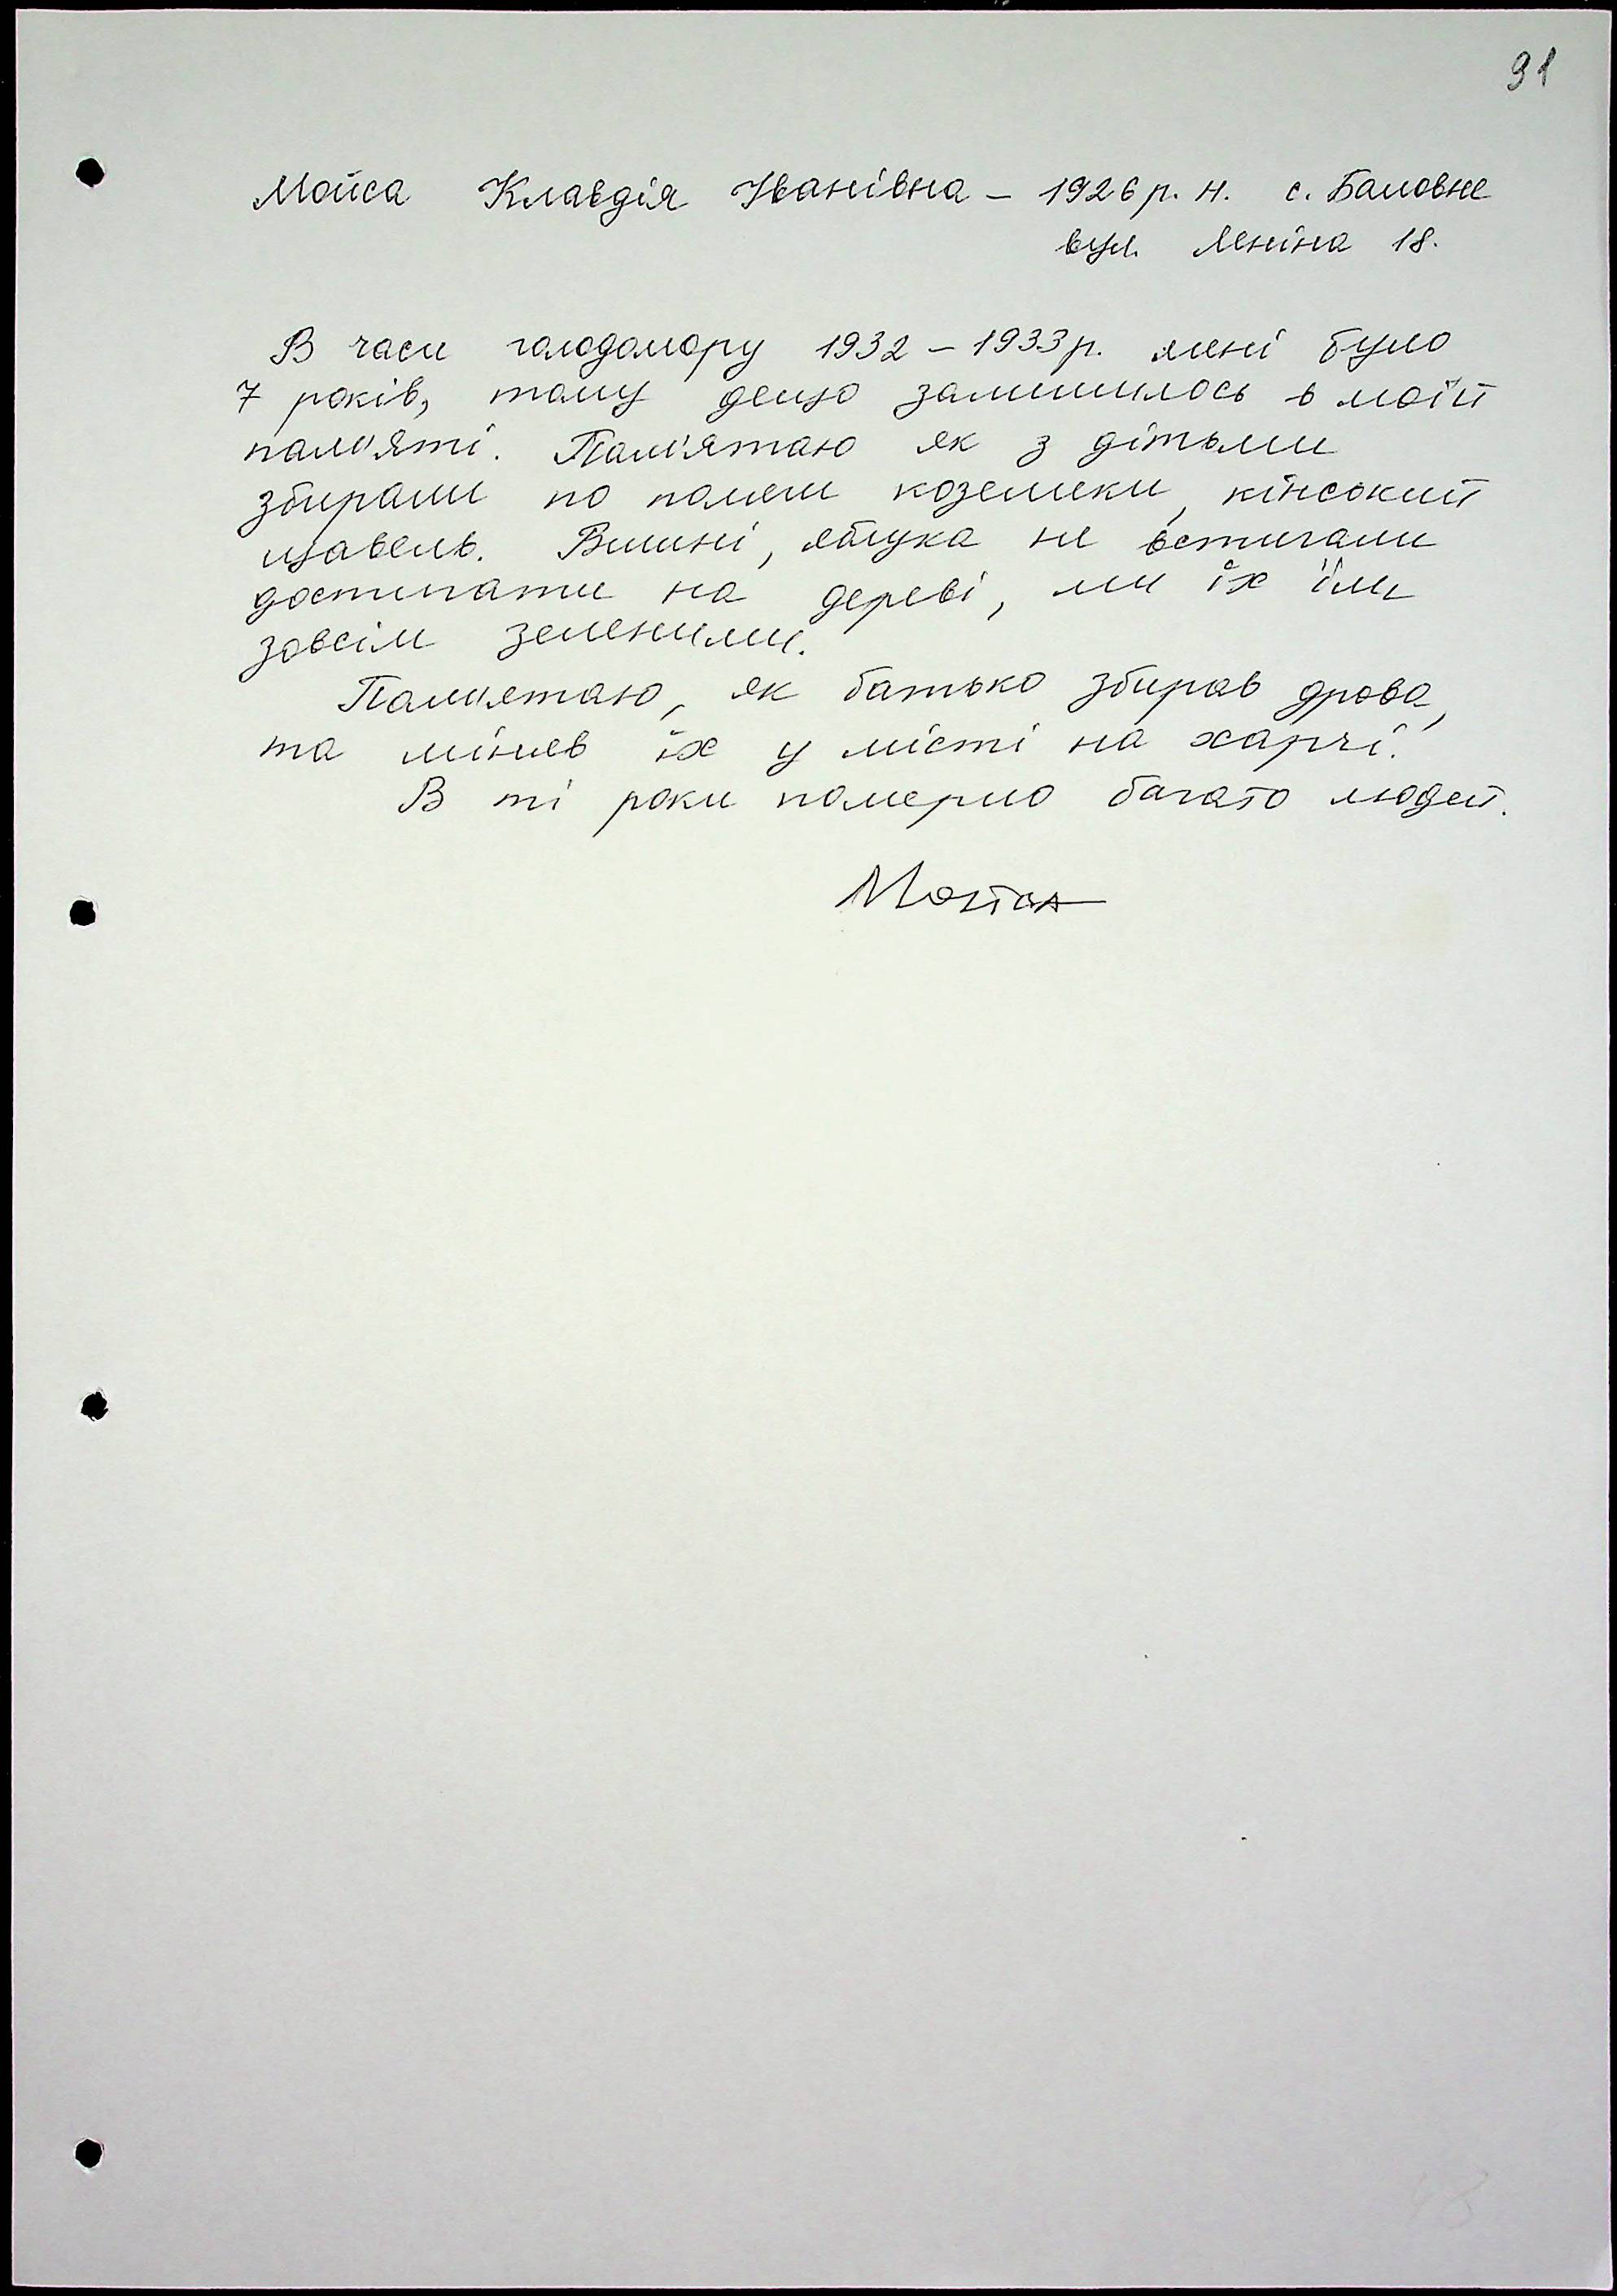 91
Мойса Клавдія Іванівна – 1926 р. н. с. Баловне
вул. Леніна 18.
В часи голодомору 1932 – 1933 р. мені було
7 років, тому дещо залишилось в моїй
пам'яті. Пам'ятаю як з дітьми
збирали по полям козельки, кінський
щавель. Вишні, яблука не встигали
достигати на дереві, ми їх їли
зовсім зеленими.
Пам'ятаю, як батько збирав дрова,
та міняв їх у місті на харчі.
В ті роки померло багато людей.